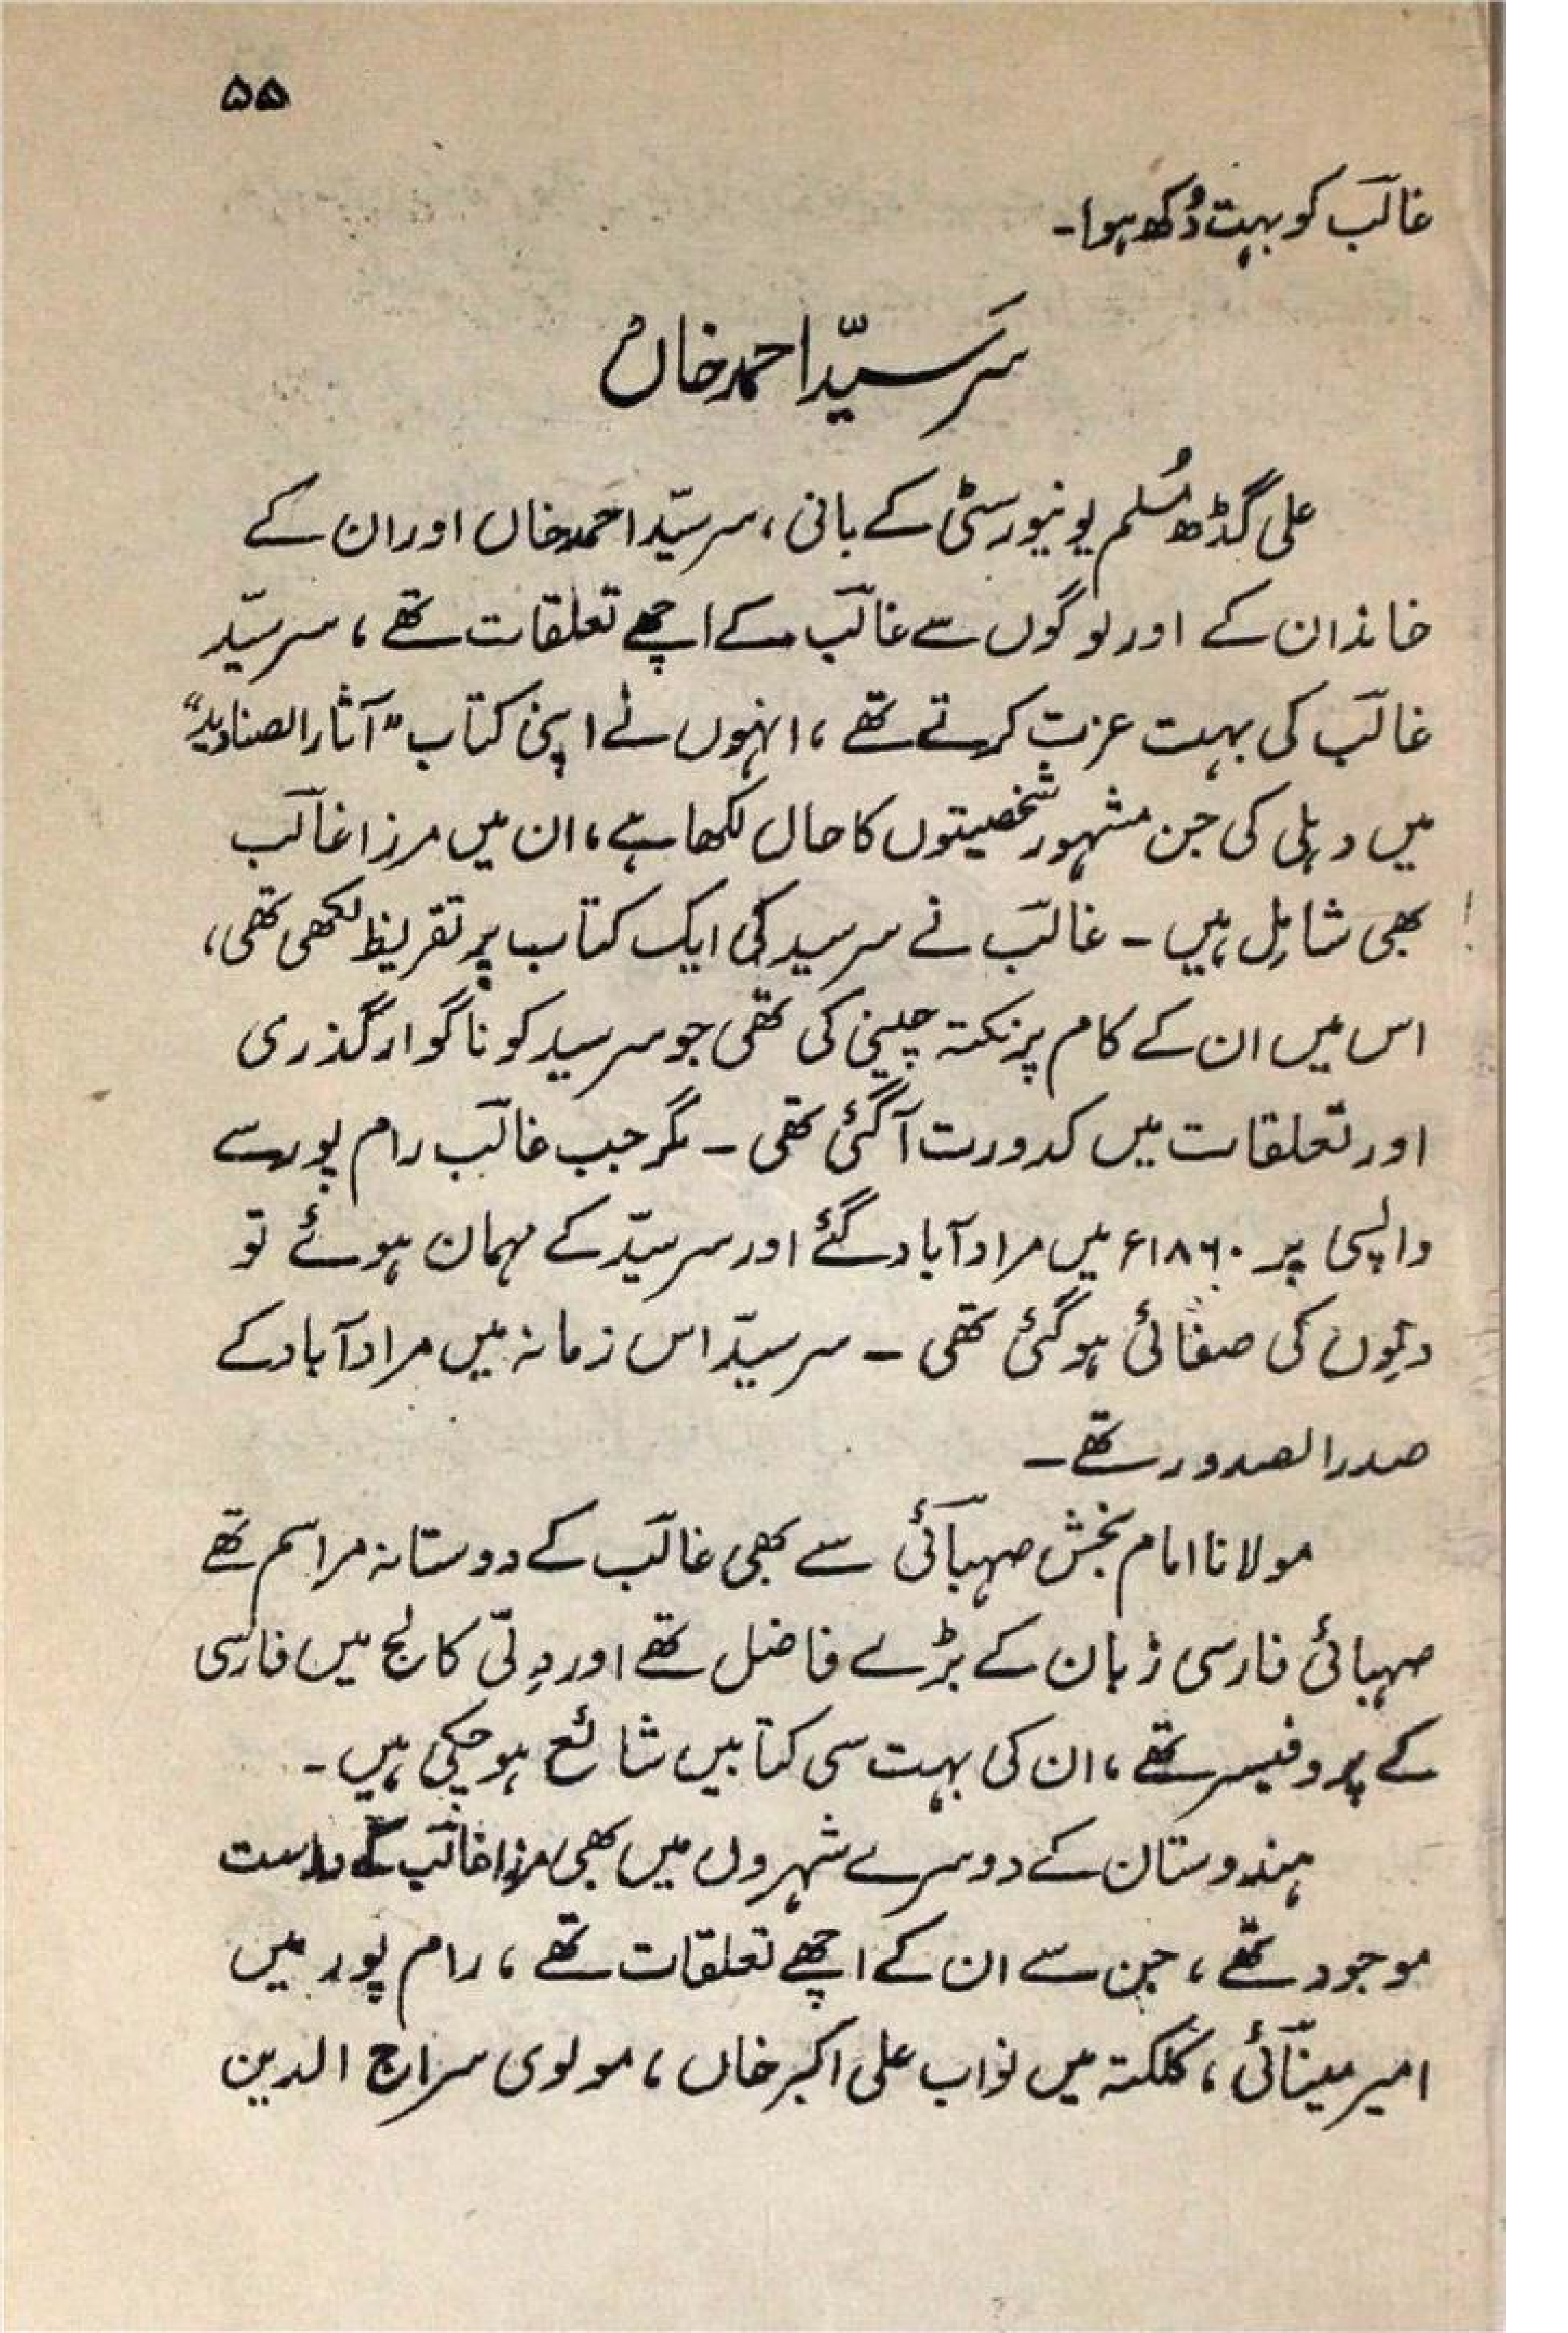 ۵۵
غالبؔ کو بہت دُکھ ہوا۔
سَر سیّد احمد خاں
علی گڈھ مُسلم یونیورسٹی کے بانی، سر سیّد احمد خاں اور ان کے
خاندان کے اور لوگوں سے غالبؔ کے اچھے تعلقات تھے، سر سیّد
غالبؔ کی بہت عزت کرتے تھے، انہوں نے اپنی کتاب "آثار الصنادید"
میں دہلی کی جن مشہور شخصیتوں کا حال لکھا ہے، ان میں مرزا غالبؔ
بھی شامِل ہیں۔ غالبؔ نے سر سید کی ایک کتاب پر تقریظ لکھی تھی،
اس میں ان کے کام پر نکتہ چینی کی تھی جو سر سید کو ناگوار گذری
اور تعلقات میں کدورت آگئی تھی۔ مگر جب غالبؔ رام پور سے
واپسی پر ۱۸۶۰ء میں مراد آباد گئے اور سر سیّد کے مہمان ہوئے تو
دِلوں کی صفائی ہوگئی تھی۔ سر سیّد اس زمانہ میں مراد آباد کے
صدر الصدور تھے۔
مولانا امام بخش صہبائیؔ سے بھی غالبؔ کے دوستانہ مراسم تھے
صہبائی فارسی زبان کے بڑے فاضل تھے اور دِلّی کالج میں فارسی
کے پروفیسر تھے، ان کی بہت سی کتابیں شائع ہوچکی ہیں۔
ہندوستان کے دوسرے شہروں میں بھی مرزا غالبؔ کے دوست
موجود تھے، جن سے ان کے اچھے تعلقات تھے، رام پور میں
امیر مینائیؔ، کلکتہ میں نواب علی اکبر خاں، مولوی سراج الدین